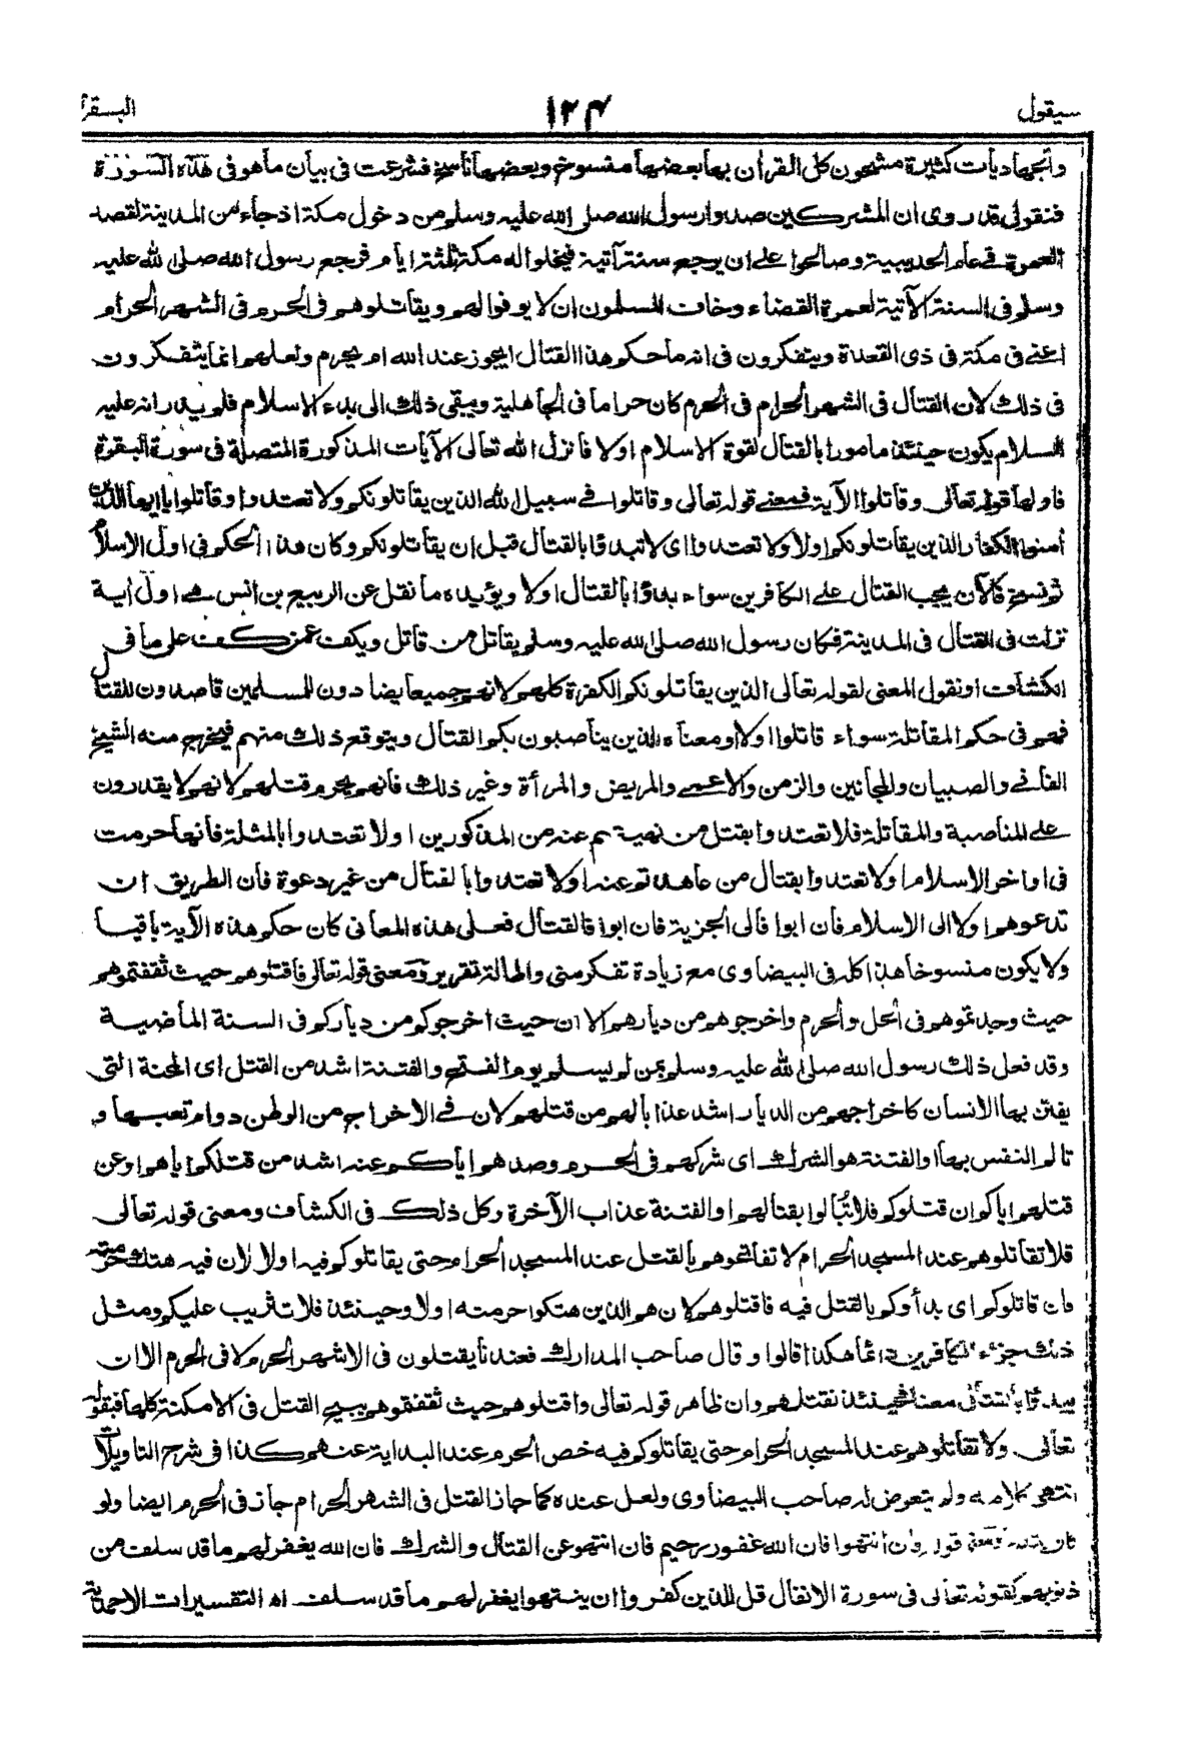 سيقول ١٢٤ البقرة
والجهاد يات كثيرة مشحون كل القران بها بعضها منسوخ وبعضها ناسخ فشرعت فى بيان ما هو فى هذه السورة
فنقول قد روى ان المشركين صدوا رسول الله صلى الله عليه وسلم من دخول مكة اذ جاء من المدينة لقصد
العمرة فى عام الحديبية وصالحوا على ان يرجع سنة آتية فيخلوا له مكة ثلثة ايام فرجع رسول الله صلى الله عليه
وسلم فى السنة الآتية لعمرة القضاء وخاف المسلمون ان لا يوفوا لهم ويقاتلوهم فى الحرم فى الشهر الحرام
اعنى فى مكة فى ذى القعدة ويتفكرون فى انه ما حكم هذا القتال ايجوز عند الله ام يحرم ولعلهم انما يتفكرون
فى ذلك لان القتال فى الشهر الحرام فى الحرم كان حراما فى الجاهلية ويبقى ذلك الى بدء الاسلام فلم يدر انه عليه
السلام يكون حينئذ مامورا بالقتال لقوة الاسلام اولا فانزل الله تعالى الآيات المذكورة المتصلة فى سورة البقرة
فاولها قوله تعالى وقاتلوا الآية فمعنى قوله تعالى وقاتلوا فى سبيل الله الذين يقاتلونكم ولا تعتدوا وقاتلوا يا ايها الذين
أمنوا الكفار الذين يقاتلونكم اولا ولا تعتدوا اى لا تبدؤا بالقتال قبل ان يقاتلونكم وكان هذا الحكم فى اول الاسلام
ثم نسخ فالآن يجب القتال على الكافرين سواء بدؤا بالقتال اولا ويؤيده ما نقل عن الربيع بن انس هى اول أية
نزلت فى القتال فى المدينة فكان رسول الله صلى الله عليه وسلم يقاتل من قاتل ويكف عمن كف على ما فى
الكشاف او نقول المعنى لقوله تعالى الذين يقاتلونكم الكفرة كلهم لانهم جميعا يضادون للمسلمين قاصدون للقتال
فهم فى حكم المقاتلة سواء قاتلوا اولا او معناه الذين يناصبون بكم القتال ويتوقع ذلك منهم فيخرج منه الشيخ
الفانى والصبيان والمجانين والزمن والاعمى والمريض والمرأة وغير ذلك فانهم يحرم قتلهم لانهم لا يقدرون
على المناصبة والمقاتلة فلا تعتدوا بقتل من نهيتم عنه من المذكورين او لا تعتدوا بالمثلة فانها حرمت
فى اواخر الاسلام او لا تعتدوا بقتال من عاهدتم عنه او لا تعتدوا بالقتال من غير دعوة فان الطريق ان
تدعوهم اولا الى الاسلام فان ابوا فالى الجزية فان ابوا فالقتال فعلى هذه المعانى كان حكم هذه الآية باقيا
ولا يكون منسوخا هذا كله فى البيضاوى مع زيادة تفكر منى والحالة تقريره ومعنى قوله تعالى فاقتلوهم حيث ثقفتموهم
حيث وجدتموهم فى الحل والحرم واخرجوهم من ديارهم الان حيث اخرجوكم من دياركم فى السنة الماضية
وقد فعل ذلك رسول الله صلى الله عليه وسلم بمن لم يسلم يوم الفتح والفتنة اشد من القتل اى المحنة التى
يفتتن بها الانسان كاخراجهم من الديار اشد عذابا لهم من قتلهم لان فى الاخراج من الوطن دوام تعبها و
تالم النفس بها او الفتنة هو الشرك اى شركهم فى الحرم وصدهم اياكم عنه اشد من قتلكم اياهم او عن
قتلهم اياكم ان قتلوكم فلا تبالوا بقتالهم او الفتنة عذاب الآخرة وكل ذلك فى الكشاف ومعنى قوله تعالى
فلا تقاتلوهم عند المسجد الحرام لا تفاتحوهم بالقتل عند المسجد الحرام حتى يقاتلوكم فيه اولا لان فيه هتك حرمته
فان قاتلوكم اى بدأوكم بالقتل فيه فاقتلوهم لان هم الذين هتكوا حرمته اولا وحينئذ فلا تثريب عليكم ومثل
ذلك جزاء الكافرين دائما هكذا قالوا وقال صاحب المدارك فعندنا يقتلون فى الاشهر الحرم لا فى الحرم الا ان
يبدؤا بالقتال معنا فحينئذ نقتلهم وان ظاهر قوله تعالى واقتلوهم حيث ثقفتموهم يبيح القتل فى الامكنة كلها فبقوله
تعالى ولا تقاتلوهم عند المسجد الحرام حتى يقاتلوكم فيه خص الحرم عند البداية عنهم كذا فى شرح التاويلات
انتهى كلامه ولم يتعرض له صاحب البيضاوى ولعل عنده كما جاز القتل فى الشهر الحرام جاز فى الحرم ايضا ولو
قوله فان انتهوا فان الله غفور رحيم فان انتهوا عن القتال والشرك فان الله يغفر لهم ما قد سلف من
ذنوبهم كقوله تعالى فى سورة الانفال قل للذين كفروا ان ينتهوا يغفر لهم ما قد سلف اه التفسيرات الاحمدية